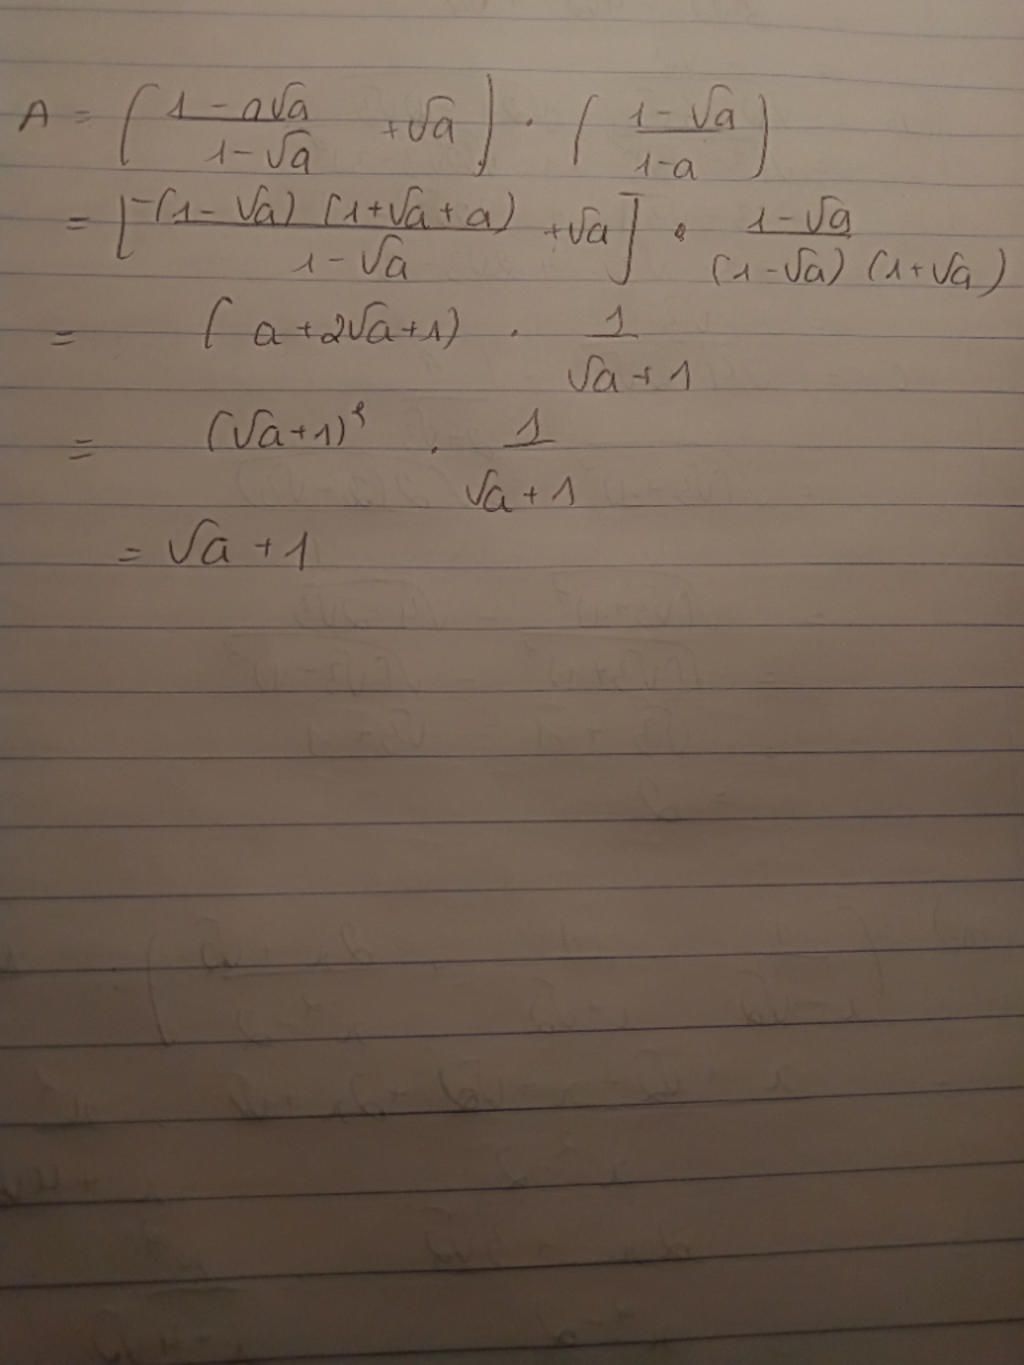 A = ( (1 - a√a)/(1 - √a) + √a ) · ( (1 - √a)/(1 - a) )
= [ -(1 - √a) (1 + √a + a)/(1 - √a) + √a ] · (1 - √a)/((1 - √a) (1 + √a))
= ( a + 2√a + 1) · 1/(√a + 1)
= (√a + 1)² · 1/(√a + 1)
= √a + 1